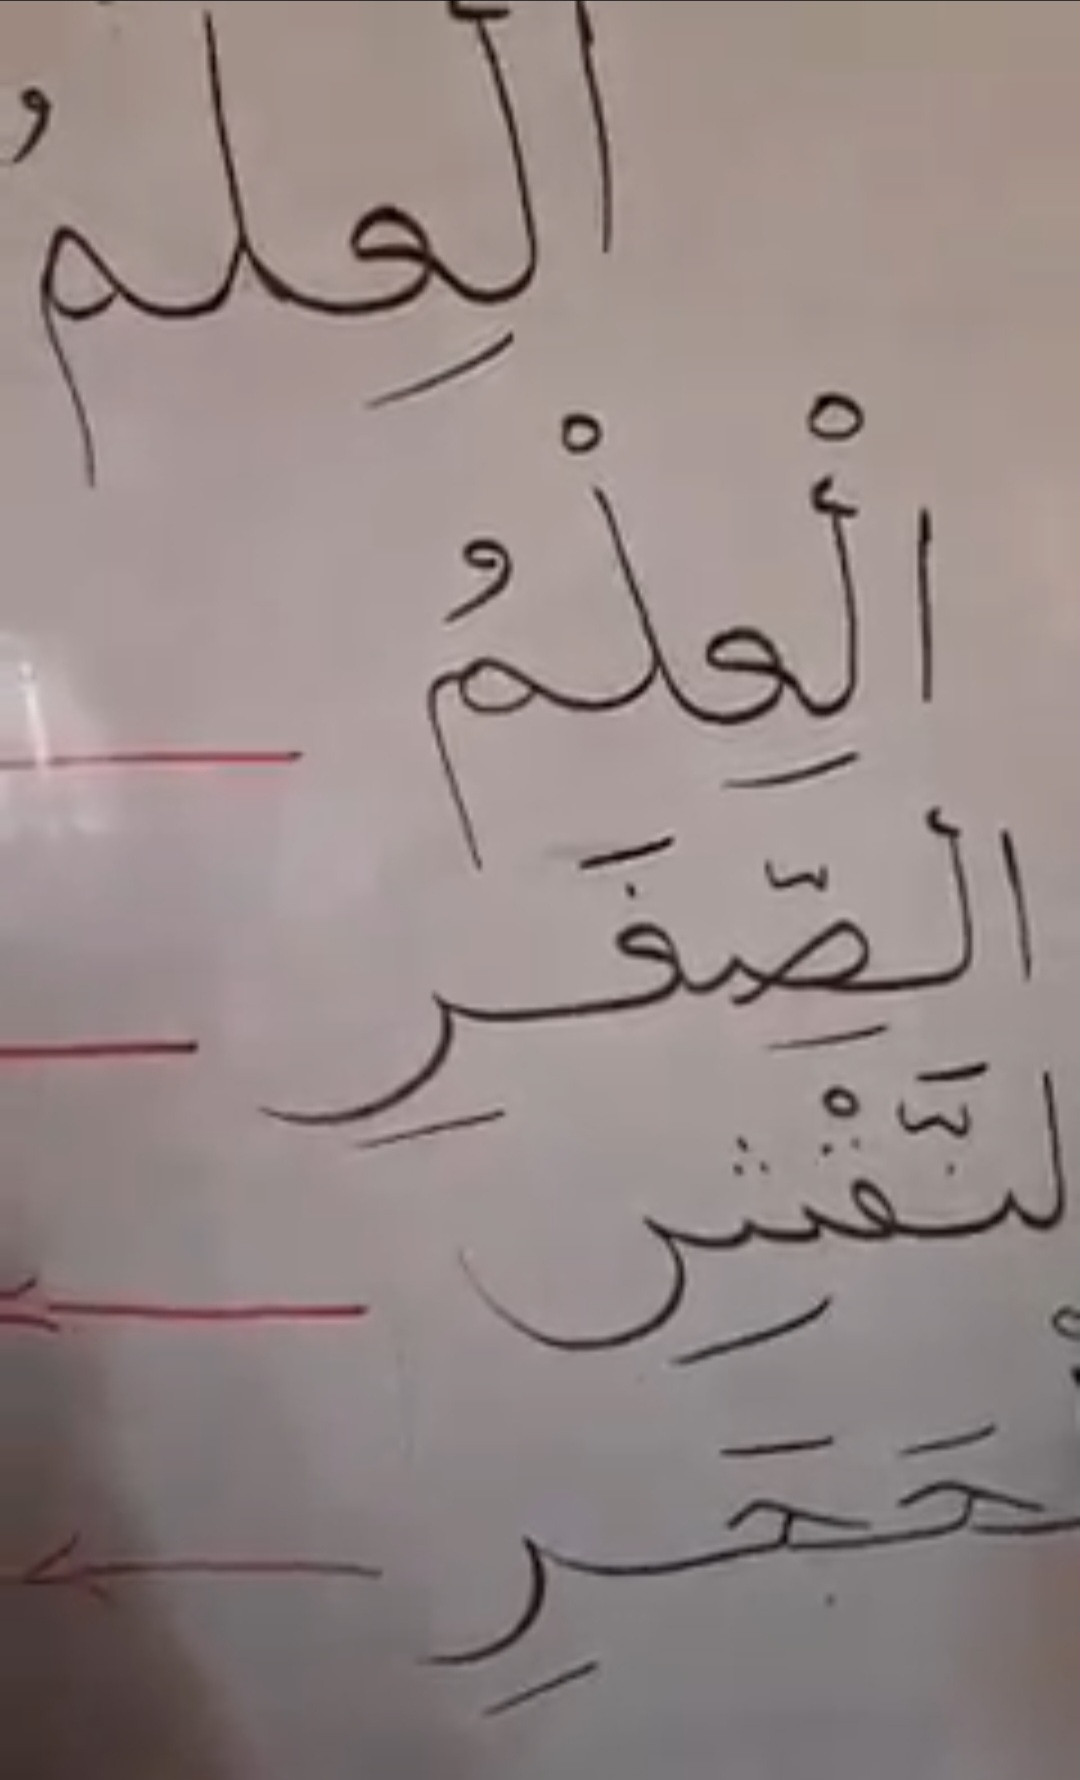 الْعِلمُ
الْعِلْمُ
الصِّفَرِ
لنَّقْشِ
لْحَجَرِ